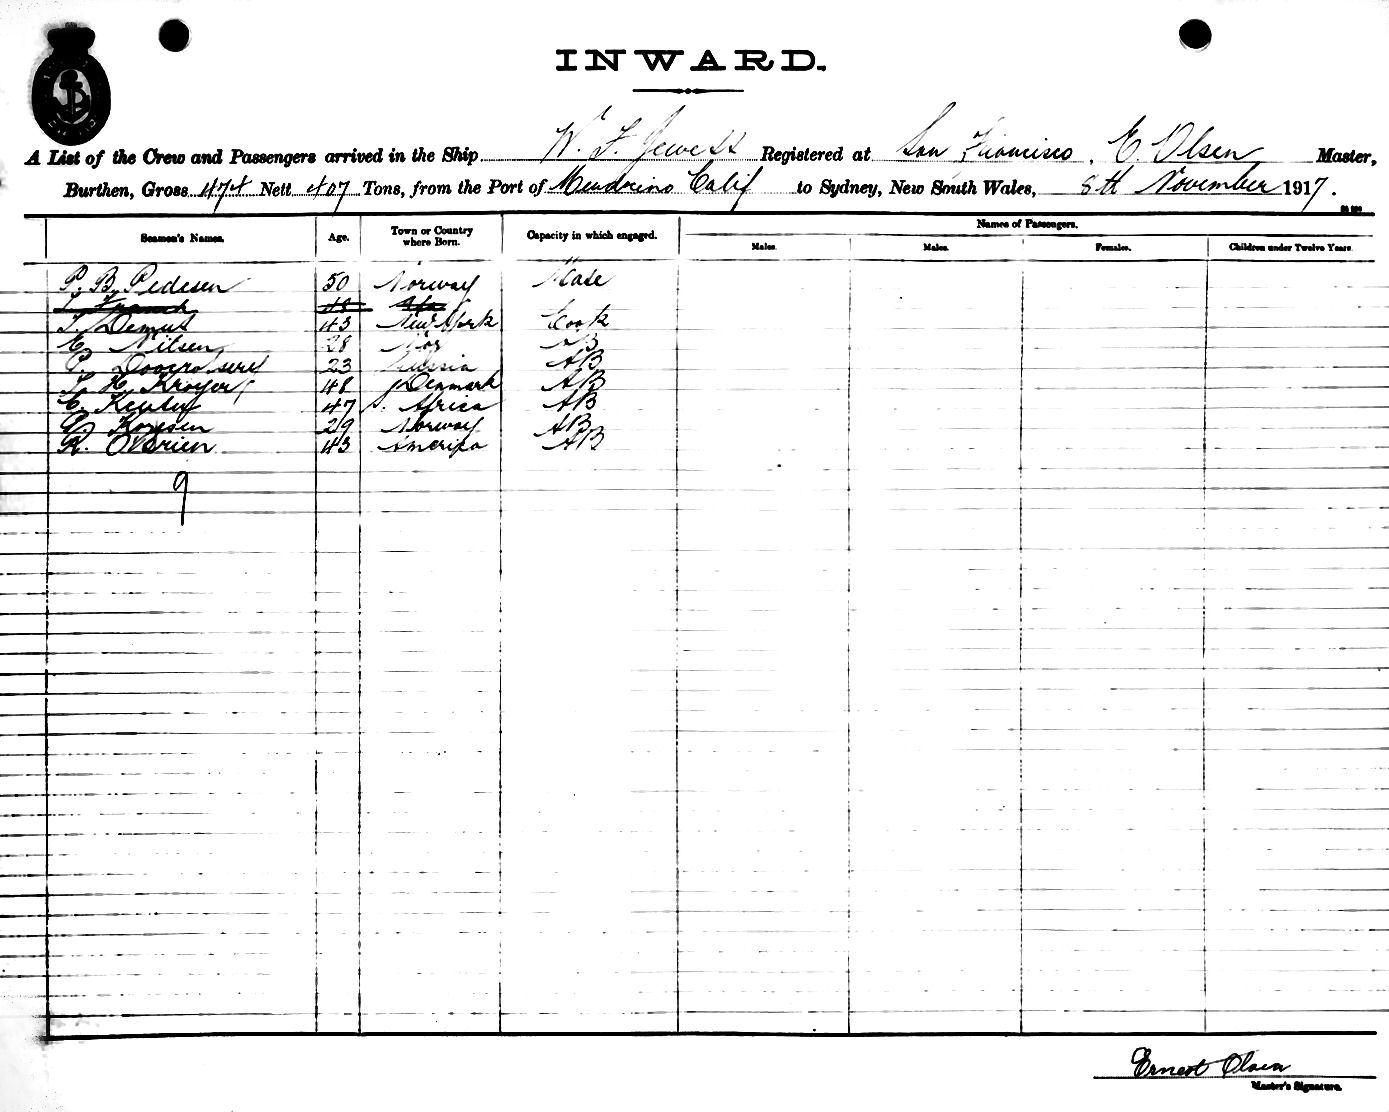 INWARD.
A List of the Crew and Passengers arrived in the Ship W. F. Jewess Registered at San Francisco, E. Olsen Master,
Burthen, Gross 474 Nett 407 Tons, from the Port of Mendocino Calif to Sydney, New South Wales, 8th November 1917.
Names of Passengers.
Seamen's Names. Age. Town or Country where Born. Capacity in which engaged. Males. Males. Females. Children under Twelve Years.
P. B. Pedesen 50 Norway Mate
T. Demus 43 New York Cook
E. Nilsen 28 Nor AB
P. 23 Russia AB
H. Kroyer 48 Denmark AB
C. 47 S. Africa AB
29 Norway AB
R. O'Brien 43 America AB
9
Ernest Olsen
Master's Signature.